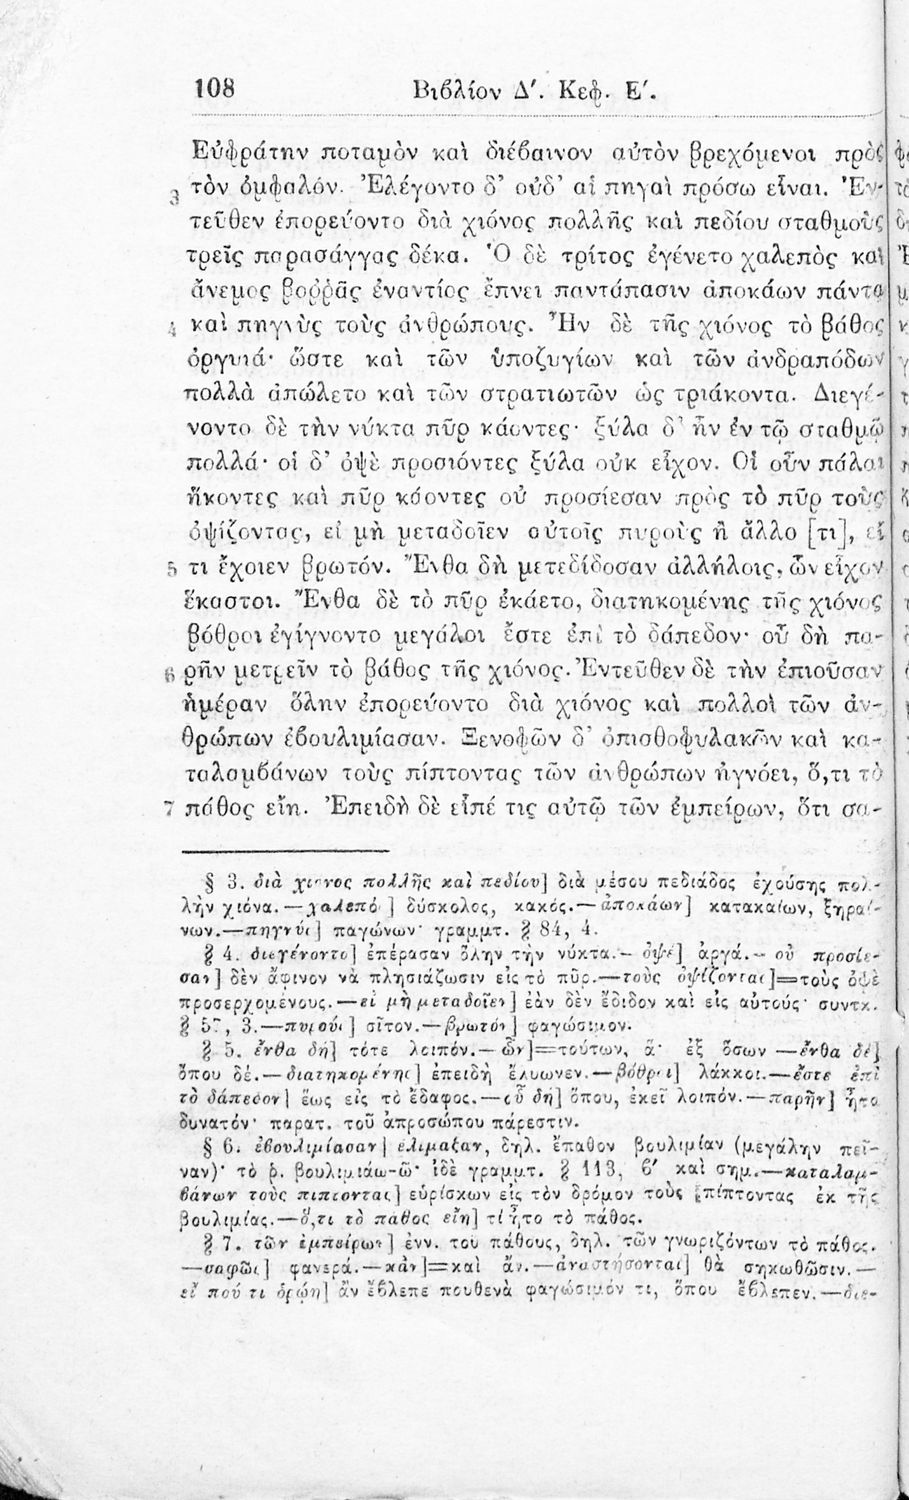 108 Βιβλίον Δʹ. Κεφ. Εʹ.
Εὐφράτην ποταμὸν καὶ διέβαινον αὐτὸν βρεχόμενοι πρὸς
3 τὸν ὀμφαλόν. Ἐλέγοντο δ' οὐδ' αἱ πηγαὶ πρόσω εἶναι. Ἐν-
τεῦθεν ἐπορεύοντο διὰ χιόνος πολλῆς καὶ πεδίου σταθμοὺς
τρεῖς παρασάγγας δέκα. Ὁ δὲ τρίτος ἐγένετο χαλεπὸς καὶ
ἄνεμος βορρᾶς ἐναντίος ἔπνει παντάπασιν ἀποκάων πάντα
4 καὶ πηγνὺς τοὺς ἀνθρώπους. Ἦν δὲ τῆς χιόνος τὸ βάθος
ὀργυιά· ὥστε καὶ τῶν ὑποζυγίων καὶ τῶν ἀνδραπόδων
πολλὰ ἀπώλετο καὶ τῶν στρατιωτῶν ὡς τριάκοντα. Διεγέ-
νοντο δὲ τὴν νύκτα πῦρ κάοντες· ξύλα δ' ἦν ἐν τῷ σταθμῷ
πολλά· οἱ δ' ὀψὲ προσιόντες ξύλα οὐκ εἶχον. Οἱ οὖν πάλαι
ἥκοντες καὶ πῦρ κάοντες οὐ προσίεσαν πρὸς τὸ πῦρ τοὺς
ὀψίζοντας, εἰ μὴ μεταδοῖεν αὐτοῖς πυροὺς ἢ ἄλλο [τι], εἴ
5 τι ἔχοιεν βρωτόν. Ἔνθα δὴ μετεδίδοσαν ἀλλήλοις, ὧν εἶχον
ἕκαστοι. Ἔνθα δὲ τὸ πῦρ ἐκάετο, διατηκομένης τῆς χιόνος
βόθροι ἐγίγνοντο μεγάλοι ἔστε ἐπὶ τὸ δάπεδον· οὗ δὴ πα-
6 ρῆν μετρεῖν τὸ βάθος τῆς χιόνος. Ἐντεῦθεν δὲ τὴν ἐπιοῦσαν
ἡμέραν ὅλην ἐπορεύοντο διὰ χιόνος καὶ πολλοὶ τῶν ἀν-
θρώπων ἐβουλιμίασαν. Ξενοφῶν δ' ὀπισθοφυλακῶν καὶ κα-
ταλαμβάνων τοὺς πίπτοντας τῶν ἀνθρώπων ἠγνόει, ὅ,τι τὸ
7 πάθος εἴη. Ἐπειδὴ δὲ εἶπέ τις αὐτῷ τῶν ἐμπείρων, ὅτι σα-
§ 3. διὰ χιόνος πολλῆς καὶ πεδίου] διὰ μέσου πεδιάδος ἐχούσης πολ-
λὴν χιόνα.—χαλεπὸς] δύσκολος, κακός.—ἀποκάων] κατακαίων, ξηραί-
νων.—πηγνὺς] παγώνων· γραμμτ. § 84, 4.
§ 4. διεγένοντο] ἐπέρασαν ὅλην τὴν νύκτα.— ὀψὲ] ἀργά.— οὐ προσίε-
σαν] δὲν ἄφινον νὰ πλησιάζωσιν εἰς τὸ πῦρ.—τοὺς ὀψίζοντας]=τοὺς ὀψὲ
προσερχομένους.—εἰ μὴ μεταδοῖεν] ἐὰν δὲν ἔδιδον καὶ εἰς αὐτούς· συντκ.
§ 57, 3.—πυροὺς] σῖτον.—βρωτόν] φαγώσιμον.
§ 5. ἔνθα δὴ] τότε λοιπόν.— ὧν]=τούτων, ἅ· ἐξ ὅσων —ἔνθα δὲ]
ὅπου δέ.—διατηκομένης] ἐπειδὴ ἔλυωνεν.—βόθροι] λάκκοι.—ἔστε ἐπὶ
τὸ δάπεδον] ἕως εἰς τὸ ἔδαφος.—οὗ δὴ] ὅπου, ἐκεῖ λοιπόν.—παρῆν] ἦτο
δυνατόν· παρατ. τοῦ ἀπροσώπου πάρεστιν.
§ 6. ἐβουλιμίασαν] ἐλίμαξαν, δηλ. ἔπαθον βουλιμίαν (μεγάλην πεῖ-
ναν)· τὸ ῥ. βουλιμιάω-ῶ· ἰδὲ γραμμτ. § 113, 6ʹ καὶ σημ.—καταλαμ-
βάνων τοὺς πίπτοντας] εὑρίσκων εἰς τὸν δρόμον τοὺς πίπτοντας ἐκ τῆς
βουλιμίας.—ὅ,τι τὸ πάθος εἴη] τί ἦτο τὸ πάθος.
§ 7. τῶν ἐμπείρων] ἐνν. τοῦ πάθους, δηλ. τῶν γνωριζόντων τὸ πάθος.
—σαφῶς] φανερά.—κἂν]=καὶ ἄν.—ἀναστήσονται] θὰ σηκωθῶσιν.—
εἴ πού τι ὁρῴη] ἂν ἔβλεπε πουθενὰ φαγώσιμόν τι, ὅπου ἔβλεπεν.—διε-